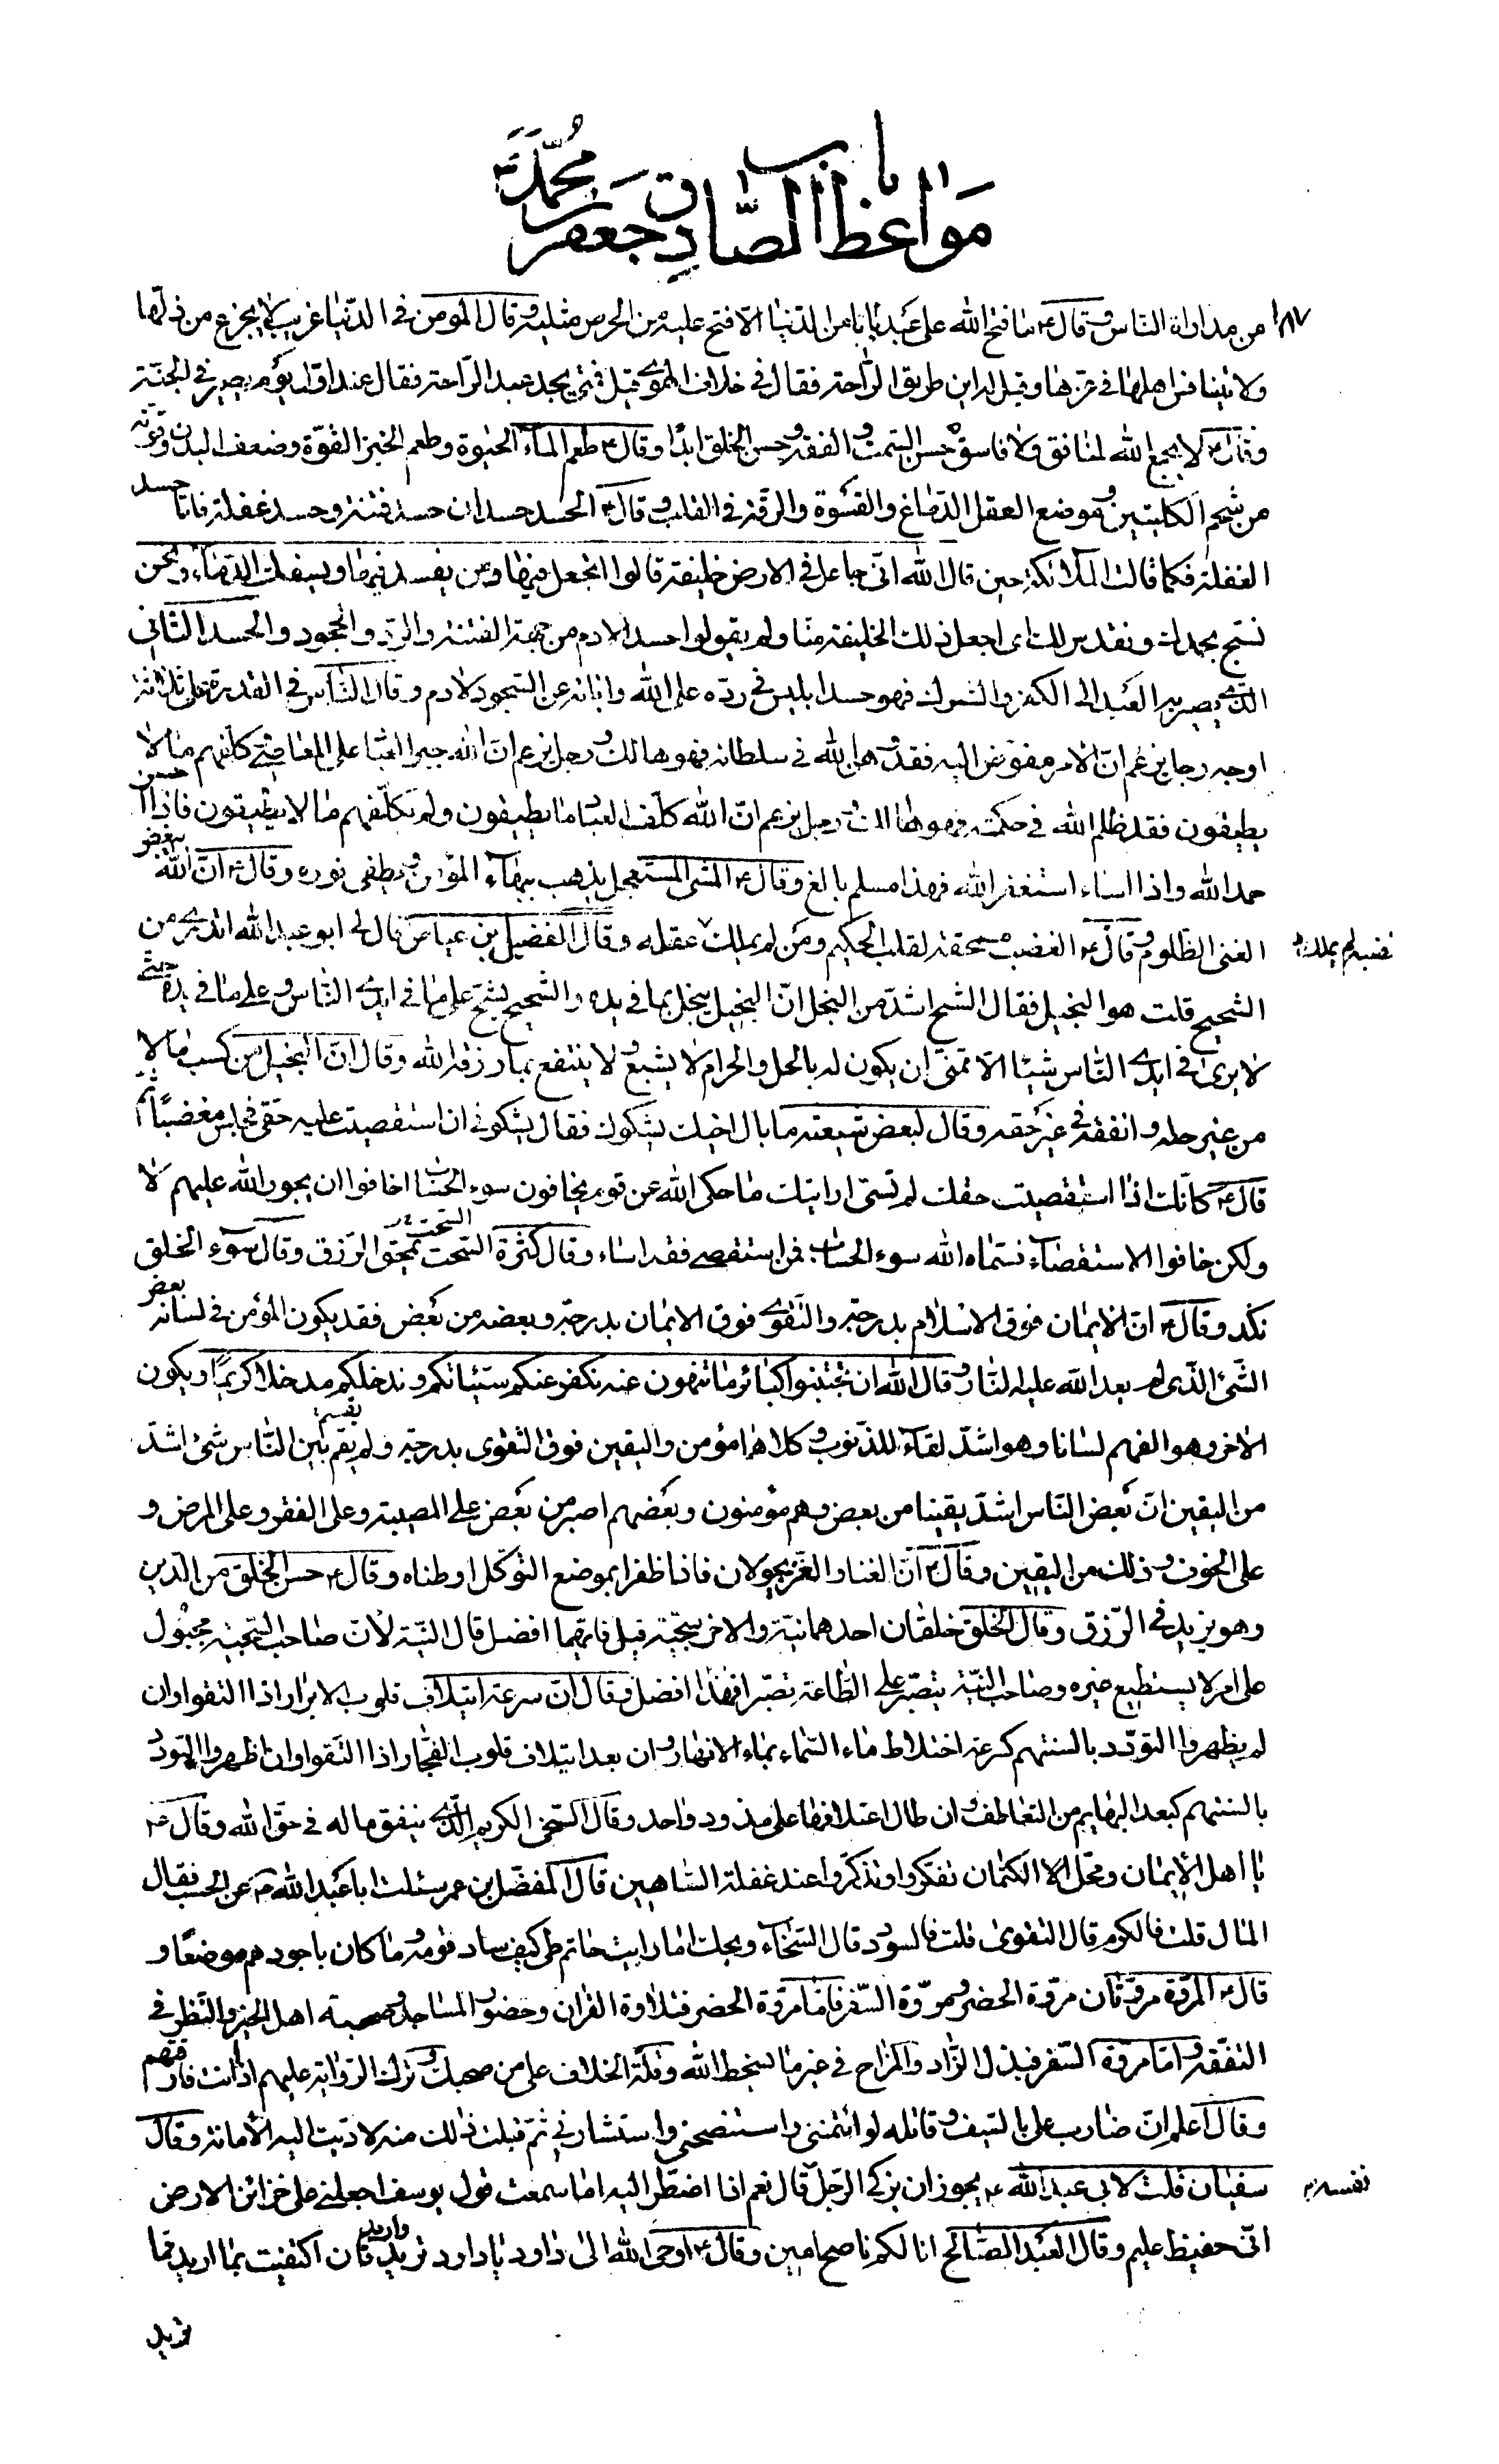 باب
مواعظ الصادق جعفر بن محمد ع
١٨٧
من مداراة الناس وقال ع ما فتح الله على عبد بابا من الدنيا الا فتح عليه من الحرص مثليه وقال المؤمن فى الدنيا غريب لا يجزع من ذلها
ولا يتنافس اهلها فى عزها وقيل له اين طريق الراحة فقال فى خلاف الهوى قيل فمتى يجد عبد الراحة فقال عند اول يوم يصير فى الجنة
وقال ع لا يجمع الله لمنافق ولا فاسق حسن السمت والفقه وحسن الخلق ابدا وقال ع طعم الماء الحيوة وطعم الخبز القوة وضعف البدن وقوته
من شحم الكليتين وموضع العقل الدماغ والقسوة والرقة فى القلب وقال ع الحسد حسدان حسد فتنة وحسد غفلة فاما حسد
الغفلة فكما قالت الملائكة حين قال الله انى جاعل فى الارض خليفة قالوا اتجعل فيها من يفسد فيها ويسفك الدماء ونحن
نسبح بحمدك ونقدس لك اى اجعل ذلك الخليفة منا ولم يقولوا حسدا لادم من جهة الفتنة والرد والجحود والحسد الثانى
الذى يصير به العبد الى الكفر والشرك فهو حسد ابليس فى رده على الله وابائه عن السجود لادم وقال الناس فى القدرة على ثلاثة
اوجه رجل يزعم ان الامر مفوض اليه فقد وهن الله فى سلطانه فهو هالك ورجل يزعم ان الله جبر العباد على المعاصى وكلفهم ما لا
يطيقون فقد ظلم الله فى حكمه فهو هالك ورجل يزعم ان الله كلف العباد ما يطيقون ولم يكلفهم ما لا يطيقون فاذا احسن
حمد الله واذا اساء استغفر الله فهذا مسلم بالغ وقال ع المشى المستعجل يذهب ببهاء المؤمن ويطفى نوره وقال ع ان الله يبغض
الغنى الظلوم وقال ع الغضب ممحقة لقلب الحكيم ومن لم يملك عقله وقال الفضيل بن عياض قال لى ابو عبد الله اتدرى من
غضبه لم يملك
الشحيح قلت هو البخيل فقال الشح اشد من البخل ان البخيل يبخل بما فى يده والشحيح يشح على ما فى ايدى الناس وعلى ما فى يده حتى
لا يرى فى ايدى الناس شيئا الا تمنى ان يكون له بالحل والحرام لا يشبع ولا ينتفع بما رزقه الله وقال ان البخيل من كسب مالا
من غير حله وانفقه فى غير حقه وقال لبعض شيعته ما بال اخيك يشكوك فقال يشكونى ان استقصيت عليه حقى فجلس مغضبا ثم
قال ع كانك اذا استقصيت حقك لم تسئ ارايتك ما حكى الله عن قوم يخافون سوء الحساب اخافوا ان يجور الله عليهم لا
ولكن خافوا الاستقصاء فسماه الله سوء الحساب فمن استقصى فقد اساء وقال كثرة السحت يمحق الرزق وقال سوء الخلق
نكد وقال ع ان الايمان فوق الاسلام بدرجة والتقوى فوق الايمان بدرجة وبعضه من بعض فقد يكون المؤمن فى لسانه بعض
الشئ الذى لم يعد الله عليه النار وقال الله ان تجتنبوا كبائر ما تنهون عنه نكفر عنكم سيئاتكم وندخلكم مدخلا كريما ويكون
الاخر وهو الفهم لسانا وهو اشد لقاء للذنوب وكلاهما مؤمن واليقين فوق التقوى بدرجة ولم يقسم بين الناس شئ اشد
من اليقين ان بعض الناس اشد يقينا من بعض وهم مؤمنون وبعضهم اصبر من بعض على المصيبة وعلى الفقر وعلى المرض و
على الخوف وذلك من اليقين وقال ع ان الغنا والعز يجولان فاذا ظفرا بموضع التوكل اوطناه وقال ع حسن الخلق من الدين
وهو يزيد فى الرزق وقال الخلق خلقان احدهما نية والاخر سجية قيل فايهما افضل قال النية لان صاحب السجية مجبول
على امر لا يستطيع غيره وصاحب النية يتصبر على الطاعة تصبرا فهذا افضل وقال ان سرعة ايتلاف قلوب الابرار اذا التقوا وان
لم يظهروا التودد بالسنتهم كسرعة اختلاط ماء السماء بماء الانهار وان بعد ايتلاف قلوب الفجار اذا التقوا وان اظهروا التودد
بالسنتهم كبعد البهايم من التعاطف وان طال اعتلافها على مذود واحد وقال السخى الكريم الذى ينفق ماله فى حق الله وقال ع
يا اهل الايمان ومحل الكتمان تفكروا وتذكروا عند غفلة الساهين قال المفضل بن عمر سئلت ابا عبد الله ع عن الحسب فقال
المال قلت فالكرم قال التقوى قلت فالسودد قال السخاء ويحك اما رايت حاتم طى كيف ساد قومه وما كان باجودهم موضعا و
قال ع المروة مروتان مروة الحضر ومروة السفر فاما مروة الحضر فتلاوة القران وحضور المساجد وصحبة اهل الخير والنظر فى
التفقه واما مروة السفر فبذل الزاد والمزاح فى غير ما يسخط الله وقلة الخلاف على من صحبك وترك الرواية عليهم اذا انت فارقتهم
وقال اعلم ان ضارب على بالسيف وقاتله لو ائتمننى واستنصحنى واستشارنى ثم قبلت ذلك منه لاديت اليه الامانة وقال
سفيان قلت لابى عبد الله ع يجوز ان يزكى الرجل قال نعم اذا اضطر اليه اما سمعت قول يوسف اجعلنى على خزائن الارض
نفسه
انى حفيظ عليم وقال العبد الصالح انا لكم ناصح امين وقال ع اوحى الله الى داود يا داود تريد واريد فان اكتفيت بما اريد مما
تريد